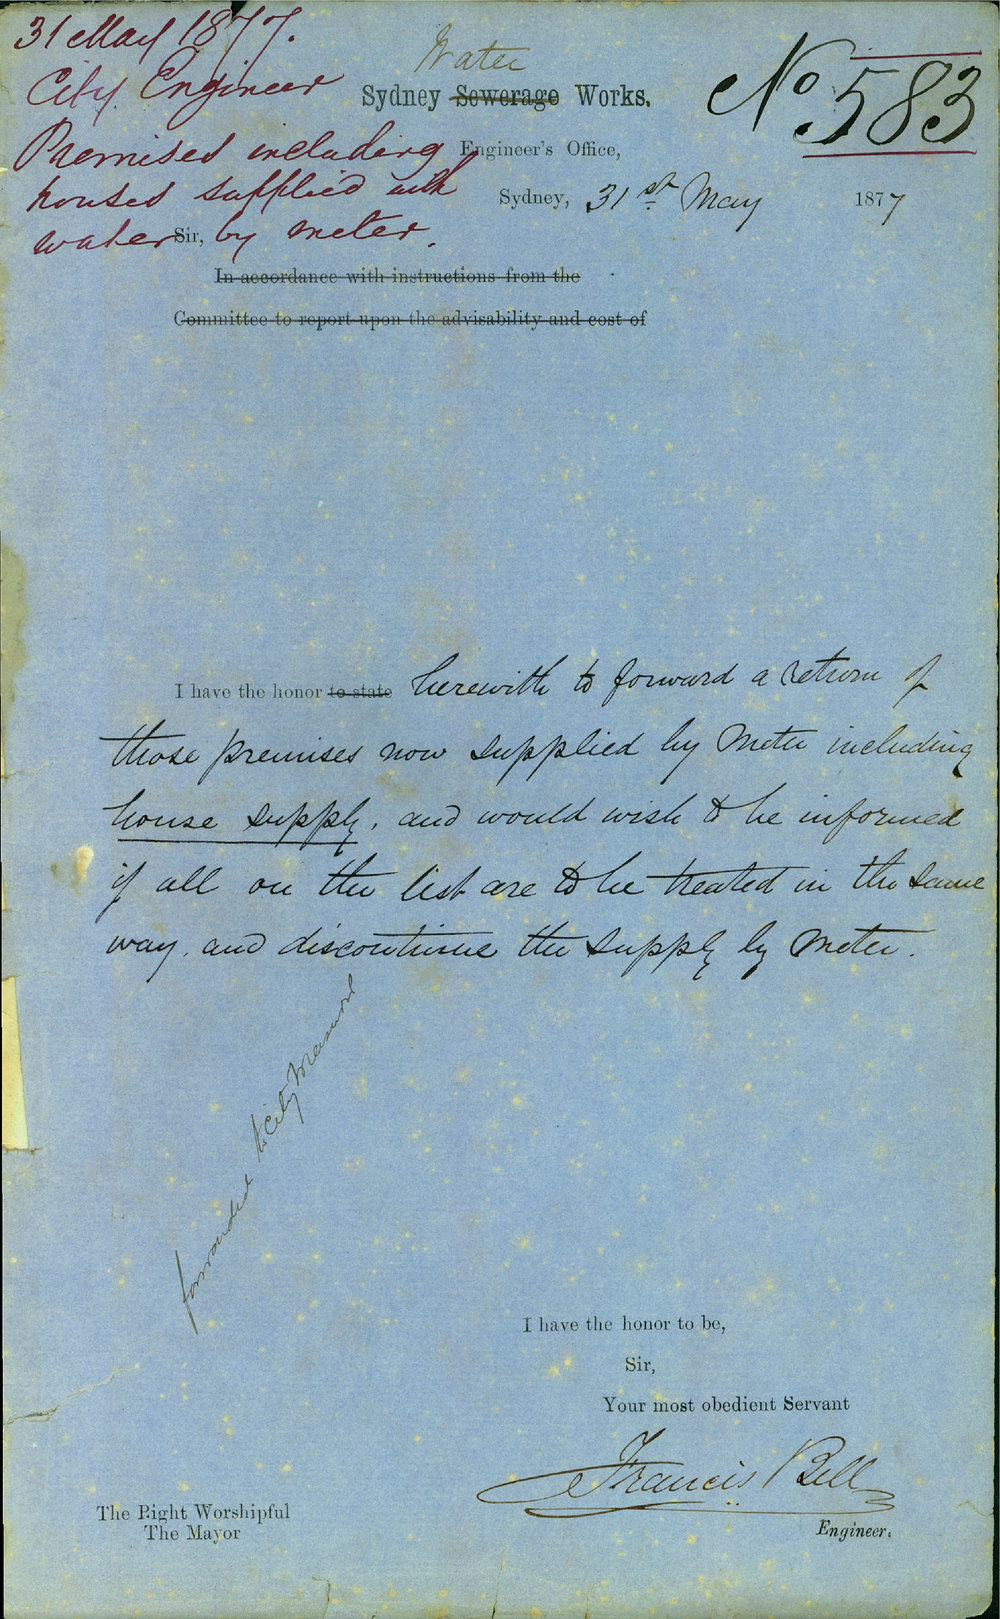 31 May 1877.
City Engineer
Premises including
houses supplied with
water by meter.
No 583
Water
Sydney Sewerage Works.
Engineer's Office,
Sydney, 31st May 1877
Sir,
In accordance with instructions from the
Committee to report upon the advisability and cost of
I have the honor to state herewith to forward a return of
those premises now supplied by Meter including
house supply, and would wish to be informed
if all on the list are to be treated in the same
way, and discontinue the supply by Meter.
forwarded to City
I have the honor to be,
Sir,
Your most obedient Servant
Francis Bell
Engineer.
The Right Worshipful
The Mayor